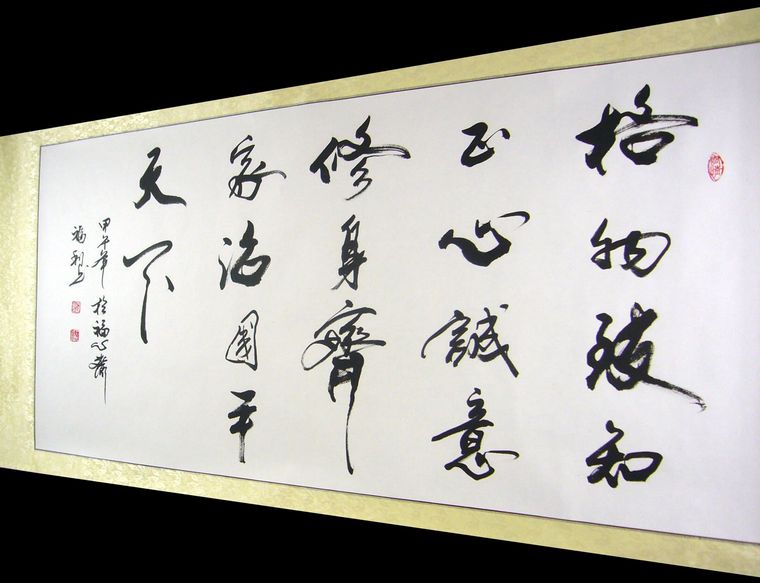 格物致知
正心誠意
修身齊
家治國平
天下
甲午年 於福心齋
福利書